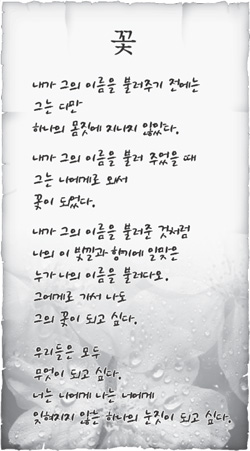 꽃
내가 그의 이름을 불러주기 전에는
그는 다만
하나의 몸짓에 지나지 않았다.
내가 그의 이름을 불러 주었을 때
그는 나에게로 와서
꽃이 되었다.
내가 그의 이름을 불러준 것처럼
나의 이 빛깔과 향기에 알맞은
누가 나의 이름을 불러다오.
그에게로 가서 나도
그의 꽃이 되고 싶다.
우리들은 모두
무엇이 되고 싶다.
너는 나에게 나는 너에게
잊혀지지 않는 하나의 눈짓이 되고 싶다.